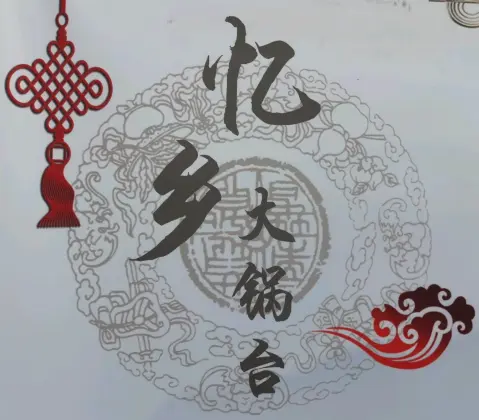 忆乡
大锅台